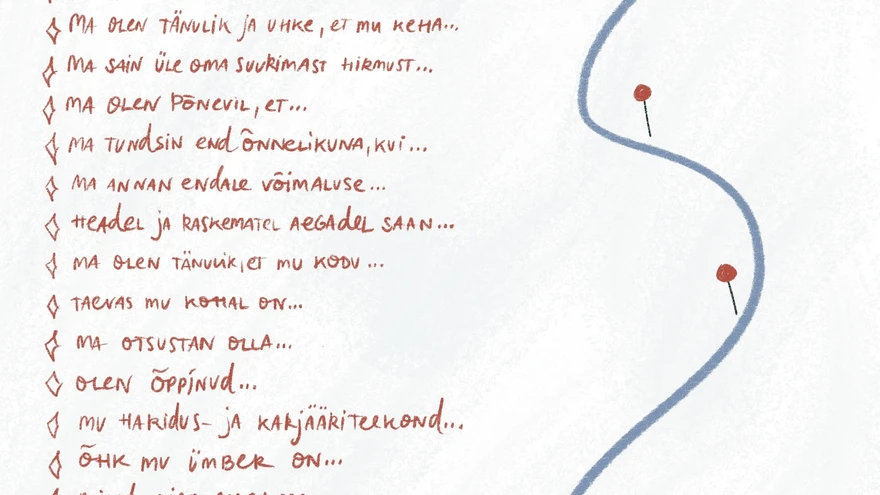 MA OLEN TÄNULIK JA UHKE, ET MU KEHA...
MA SAIN ÜLE OMA SUURIMAST HIRMUST...
MA OLEN PÕNEVIL, ET...
MA TUNDSIN END ÕNNELIKUNA, KUI...
MA ANNAN ENDALE VÕIMALUSE...
HEADEL JA RASKEMATEL AEGADEL SAAN...
MA OLEN TÄNULIK, ET MU KODU...
TAEVAS MU KOHAL ON...
MA OTSUSTAN OLLA...
OLEN ÕPPINUD...
MU HARIDUS- JA KARJÄÄRITEEKOND...
ÕHK MU ÜMBER ON...